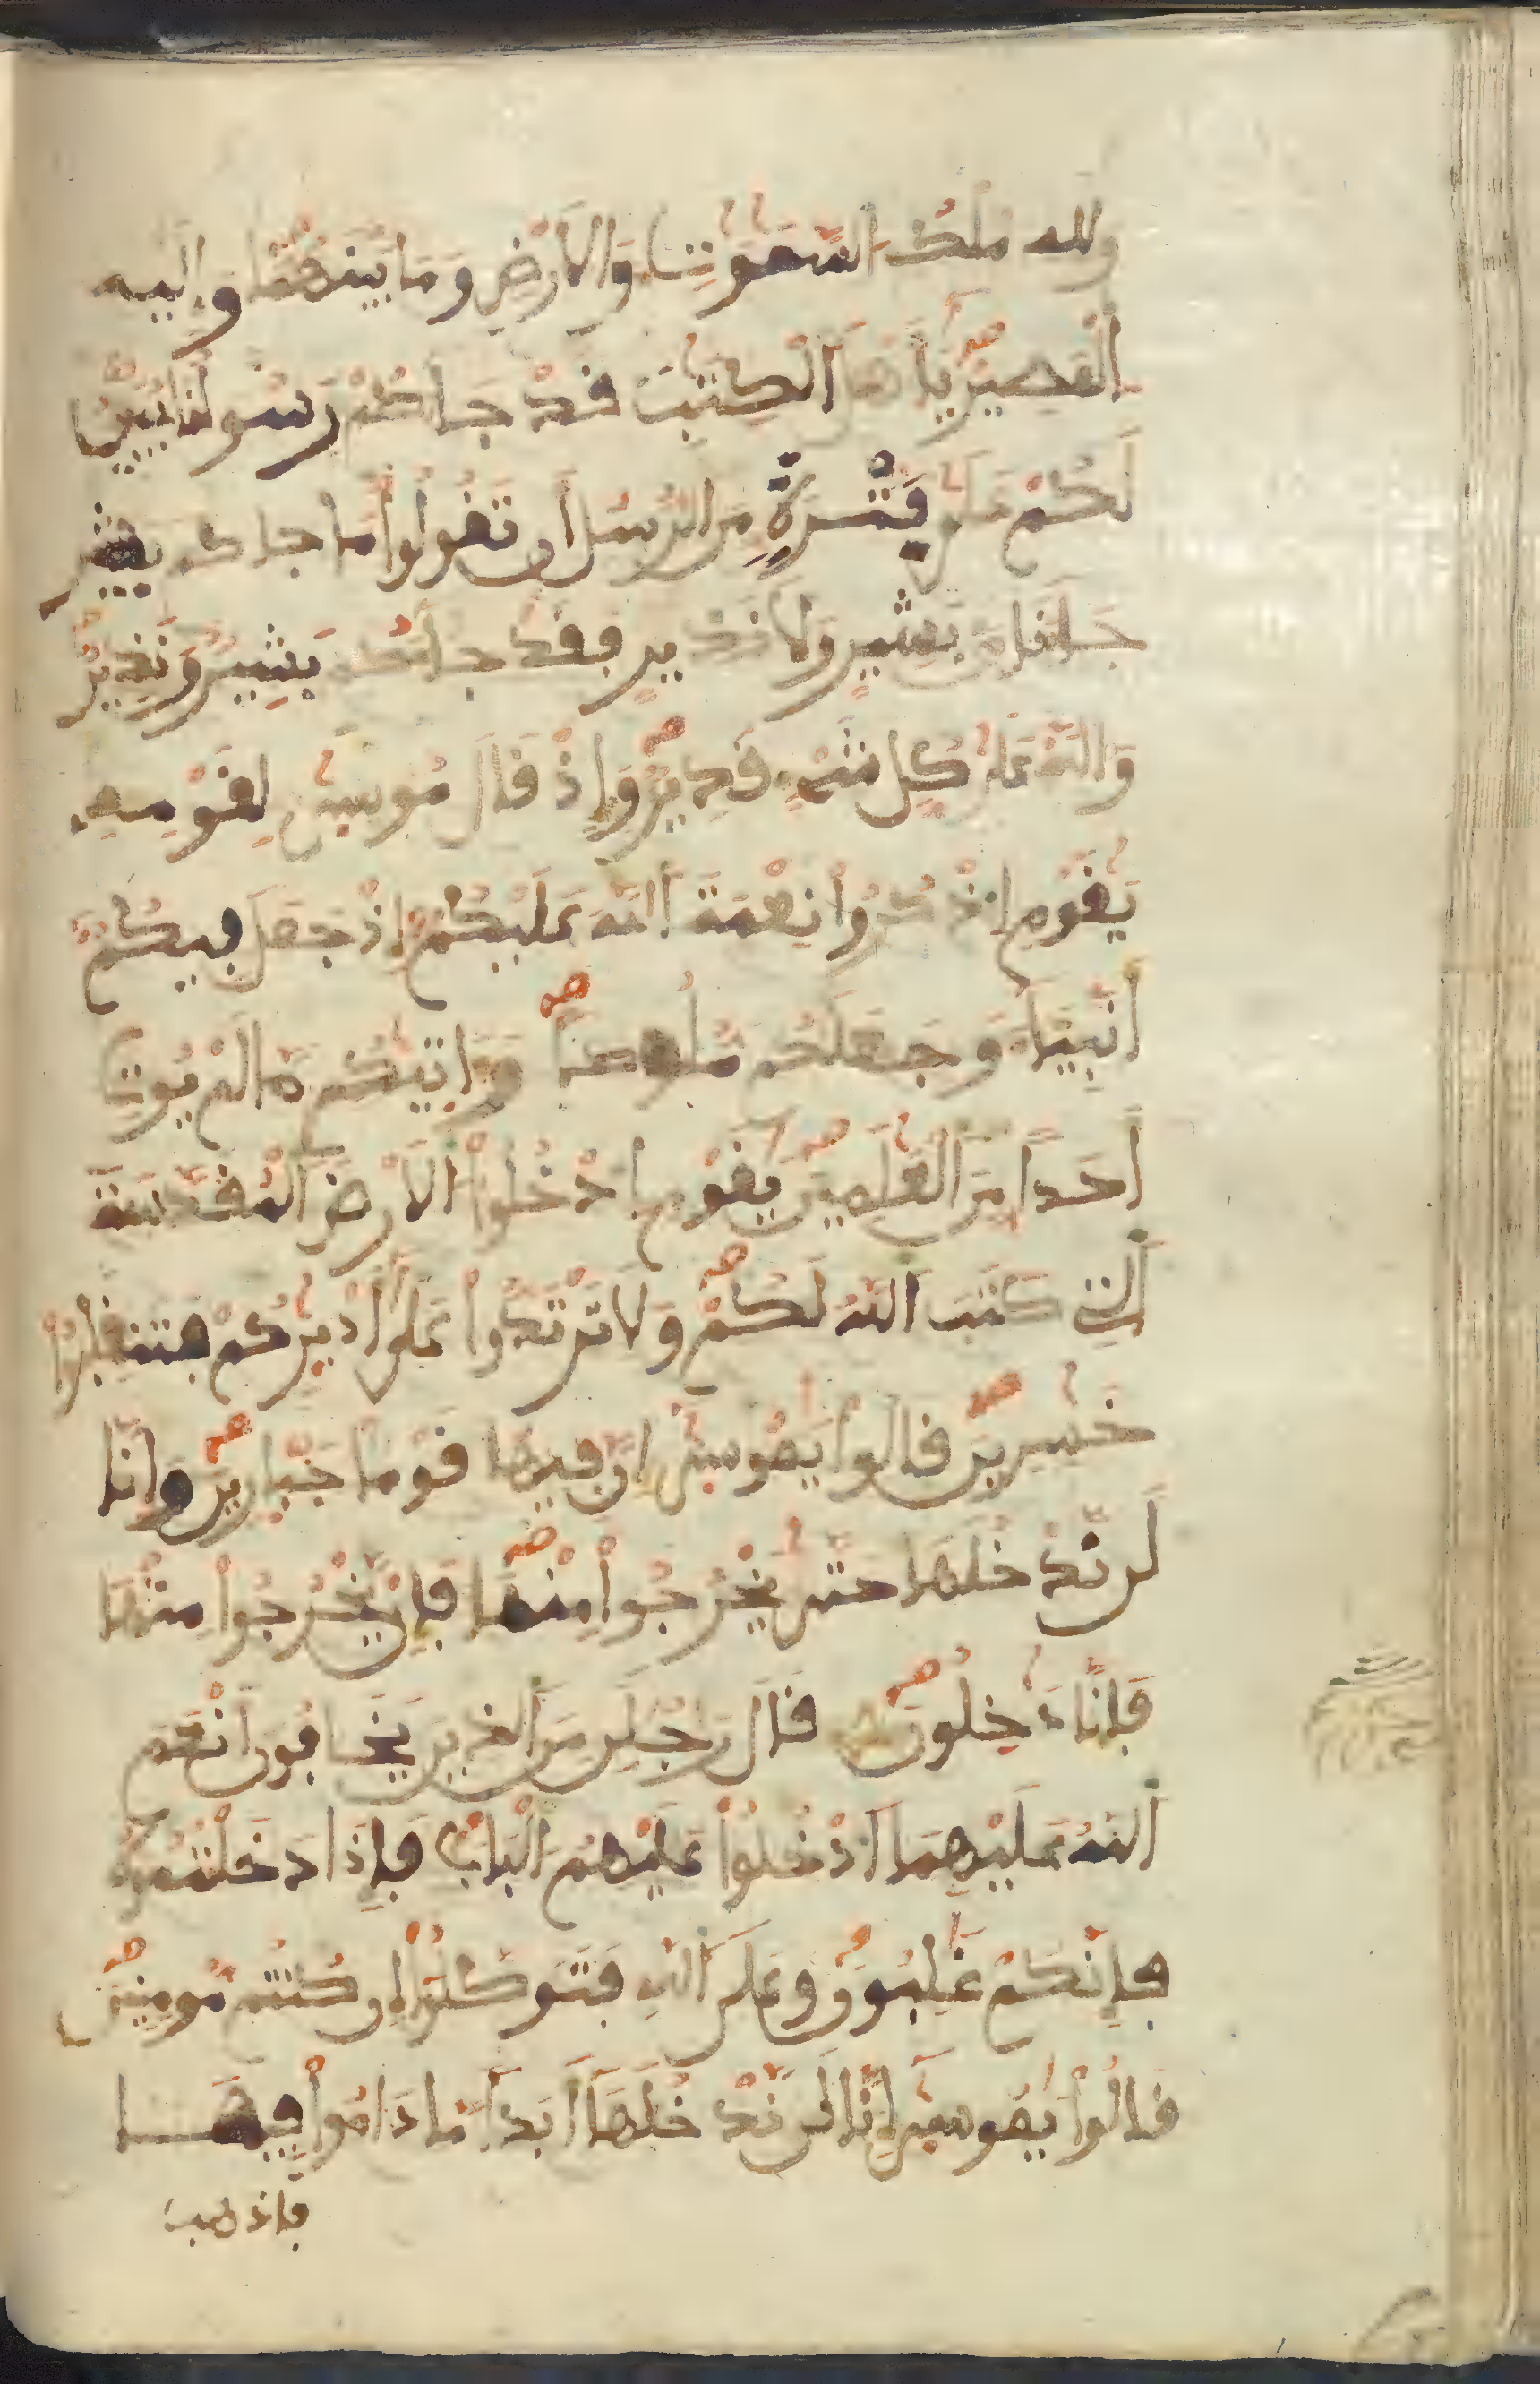 ولله مُلْكُ السَّمَوَتِ وَالاَرْضِ وَمَا بَيْنَهُمَا وَإِلَيْهِ
اَلْمَصِيرُ يَأَهْلَ اَلْكِتَبِ قَدْ جَاكُمْ رَسُولُنَا يُبَيِّنُ
لَكُمْ عَلَى فَتْرَةٍ مِّنَ الرُّسُلِ أَن تَقُولُواْ مَا جاكم بشير
جَانَا مِن بَشِيرٍ وَلاَ نَذِيرٍ فَقَدْ جَاكُم بَشِيرٌ وَنَذِيرٌ
وَاللَّهُ عَلَى كُلِّ شَيْءٍ قَدِيرٌ وَإِذْ قَالَ مُوسَى لِقَوْمِهِ
يَقَوْمِ اِذْكُرُواْ نِعْمَةَ اَللَّهِ عَلَيْكُمْ إِذْ جَعَلَ فِيكُمْ
أَنْبِيَاءَ وَجَعَلَكُم مُّلُوكاً وَءَاتَيكُم مَّا لَمْ يُوتِ
أَحَداً مِّنَ اَلْعَلَمِينَ يَقَوْمِ اِدْخُلُواْ الاَرْضَ اَلْمُقَدَّسَةَ
اَلتِي كَتَبَ اَللَّهُ لَكُمْ وَلاَ تَرْتَدُّواْ عَلَى أَدْبِرِكُمْ فَتَنقَلِبُواْ
خَسِرِينَ قَالُواْ يَمُوسَى إِنَّ فِيهَا قَوْماً جَبَّارِينَ وَإِنَّا
لَن نَّدْخُلَهَا حَتَّى يَخْرُجُواْ مِنْهَا فَإِنْ يَّخْرُجُواْ مِنْهَا
فَإِنَّا دَخِلُونَ قَالَ رَجُلَنِ مِنَ اَلذِينَ يَخَافُونَ أَنْعَمَ
اَللَّهُ عَلَيْهِمَا اَدْخُلُواْ عَلَيْهِمُ الْبَابَ فَإِذَا دَخَلْتُمُوهُ
فَإِنَّكُمْ غَلِبُونَ وَعَلَى اَللَّهِ فَتَوَكَّلُواْ إِن كُنتُم مُّومِنِينَ
قَالُواْ يَمُوسَى إِنَّا لَن نَّدْخُلَهَا أَبَداً مَّا دَامُواْ فِيهَا
فاذهب